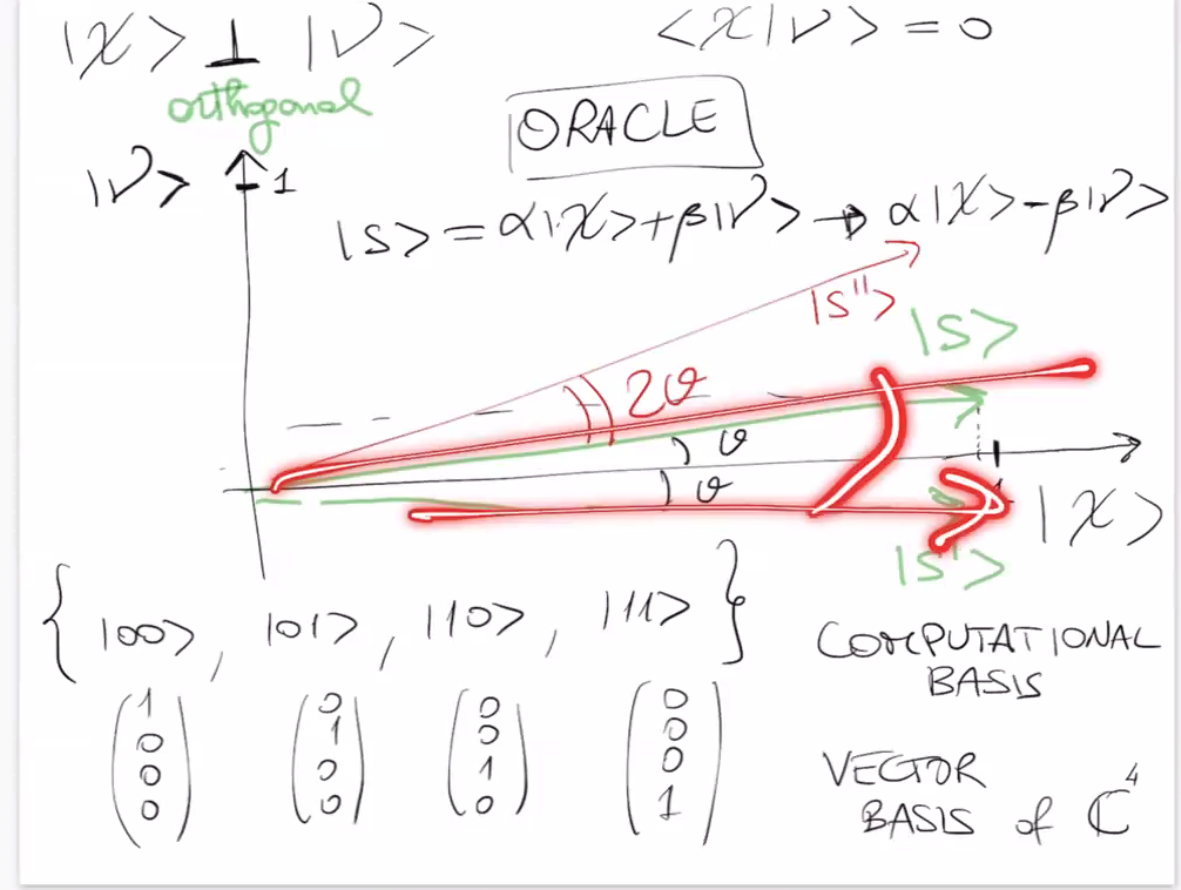 |χ> ⊥ |ν>
<χ|ν> = 0
orthogonal
ORACLE
|ν>
1
|s> = α|χ> + β|ν> → α|χ> - β|ν>
|s''>
|s>
2ϑ
ϑ
ϑ
1
|χ>
|s'>
{ |00>, |01>, |10>, |11> }
COMPUTATIONAL
BASIS
1 0 0 0
0 1 0 0
0 0 1 0
0 0 0 1
VECTOR
BASIS of ℂ⁴